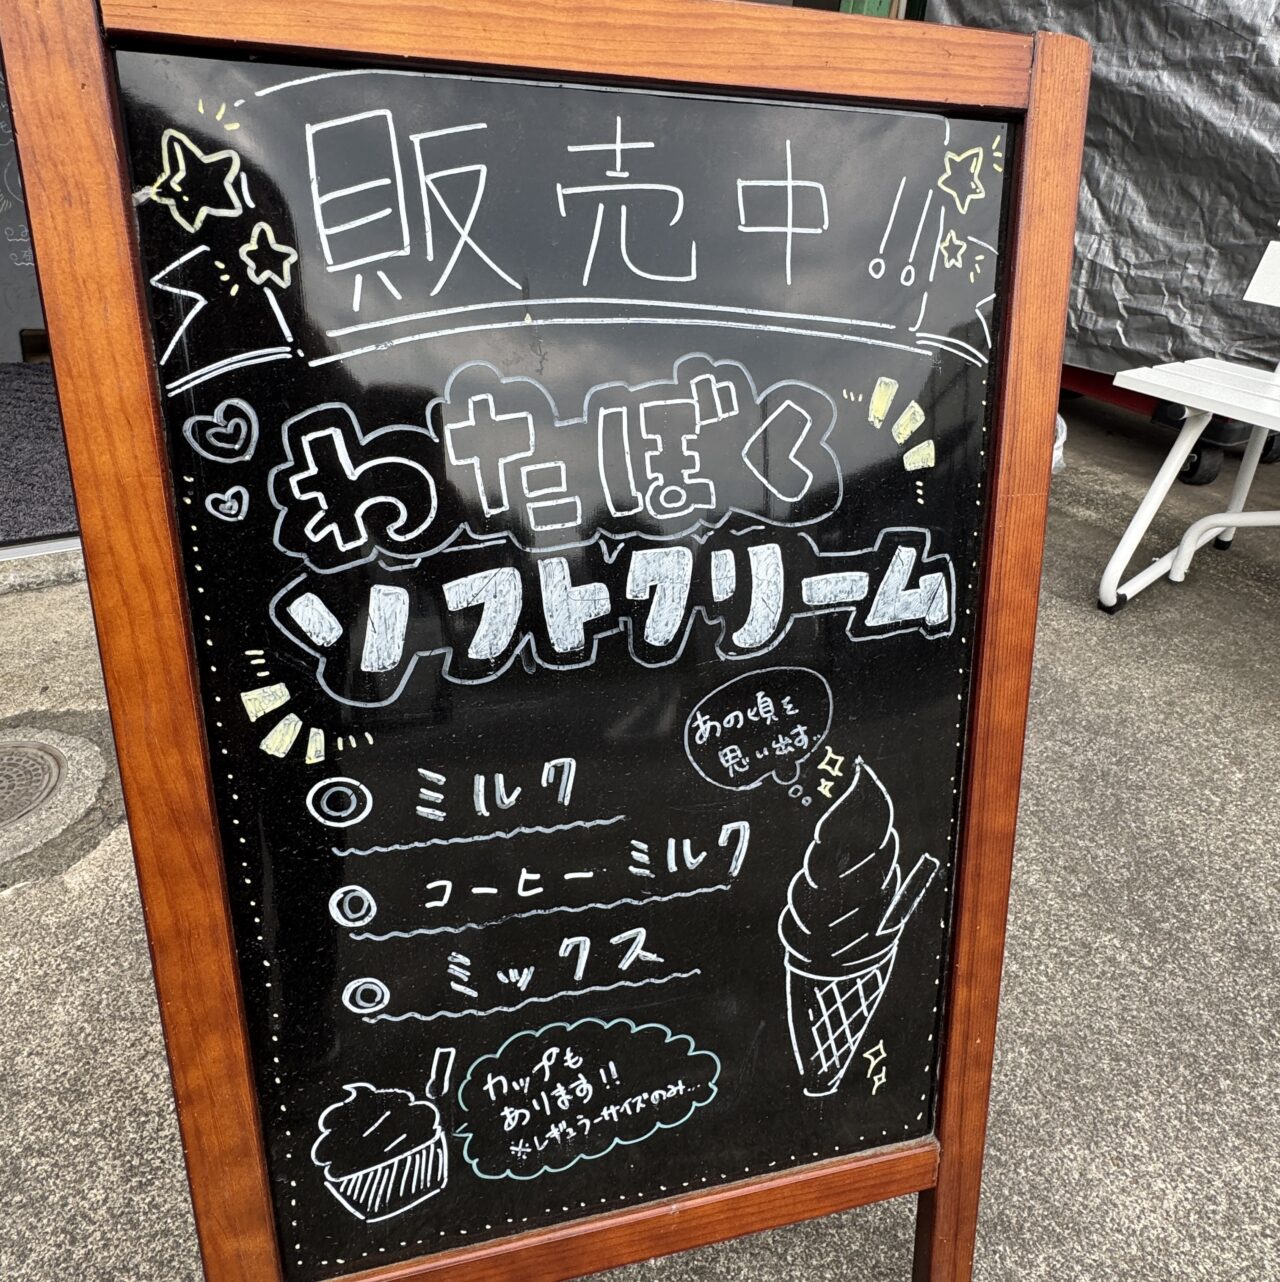 販売中!!
わたぼく
ソフトクリーム
あの頃を
思い出す..
◎ ミルク
◎ コーヒーミルク
◎ ミックス
カップも
あります!!
※レギュラーサイズのみ...